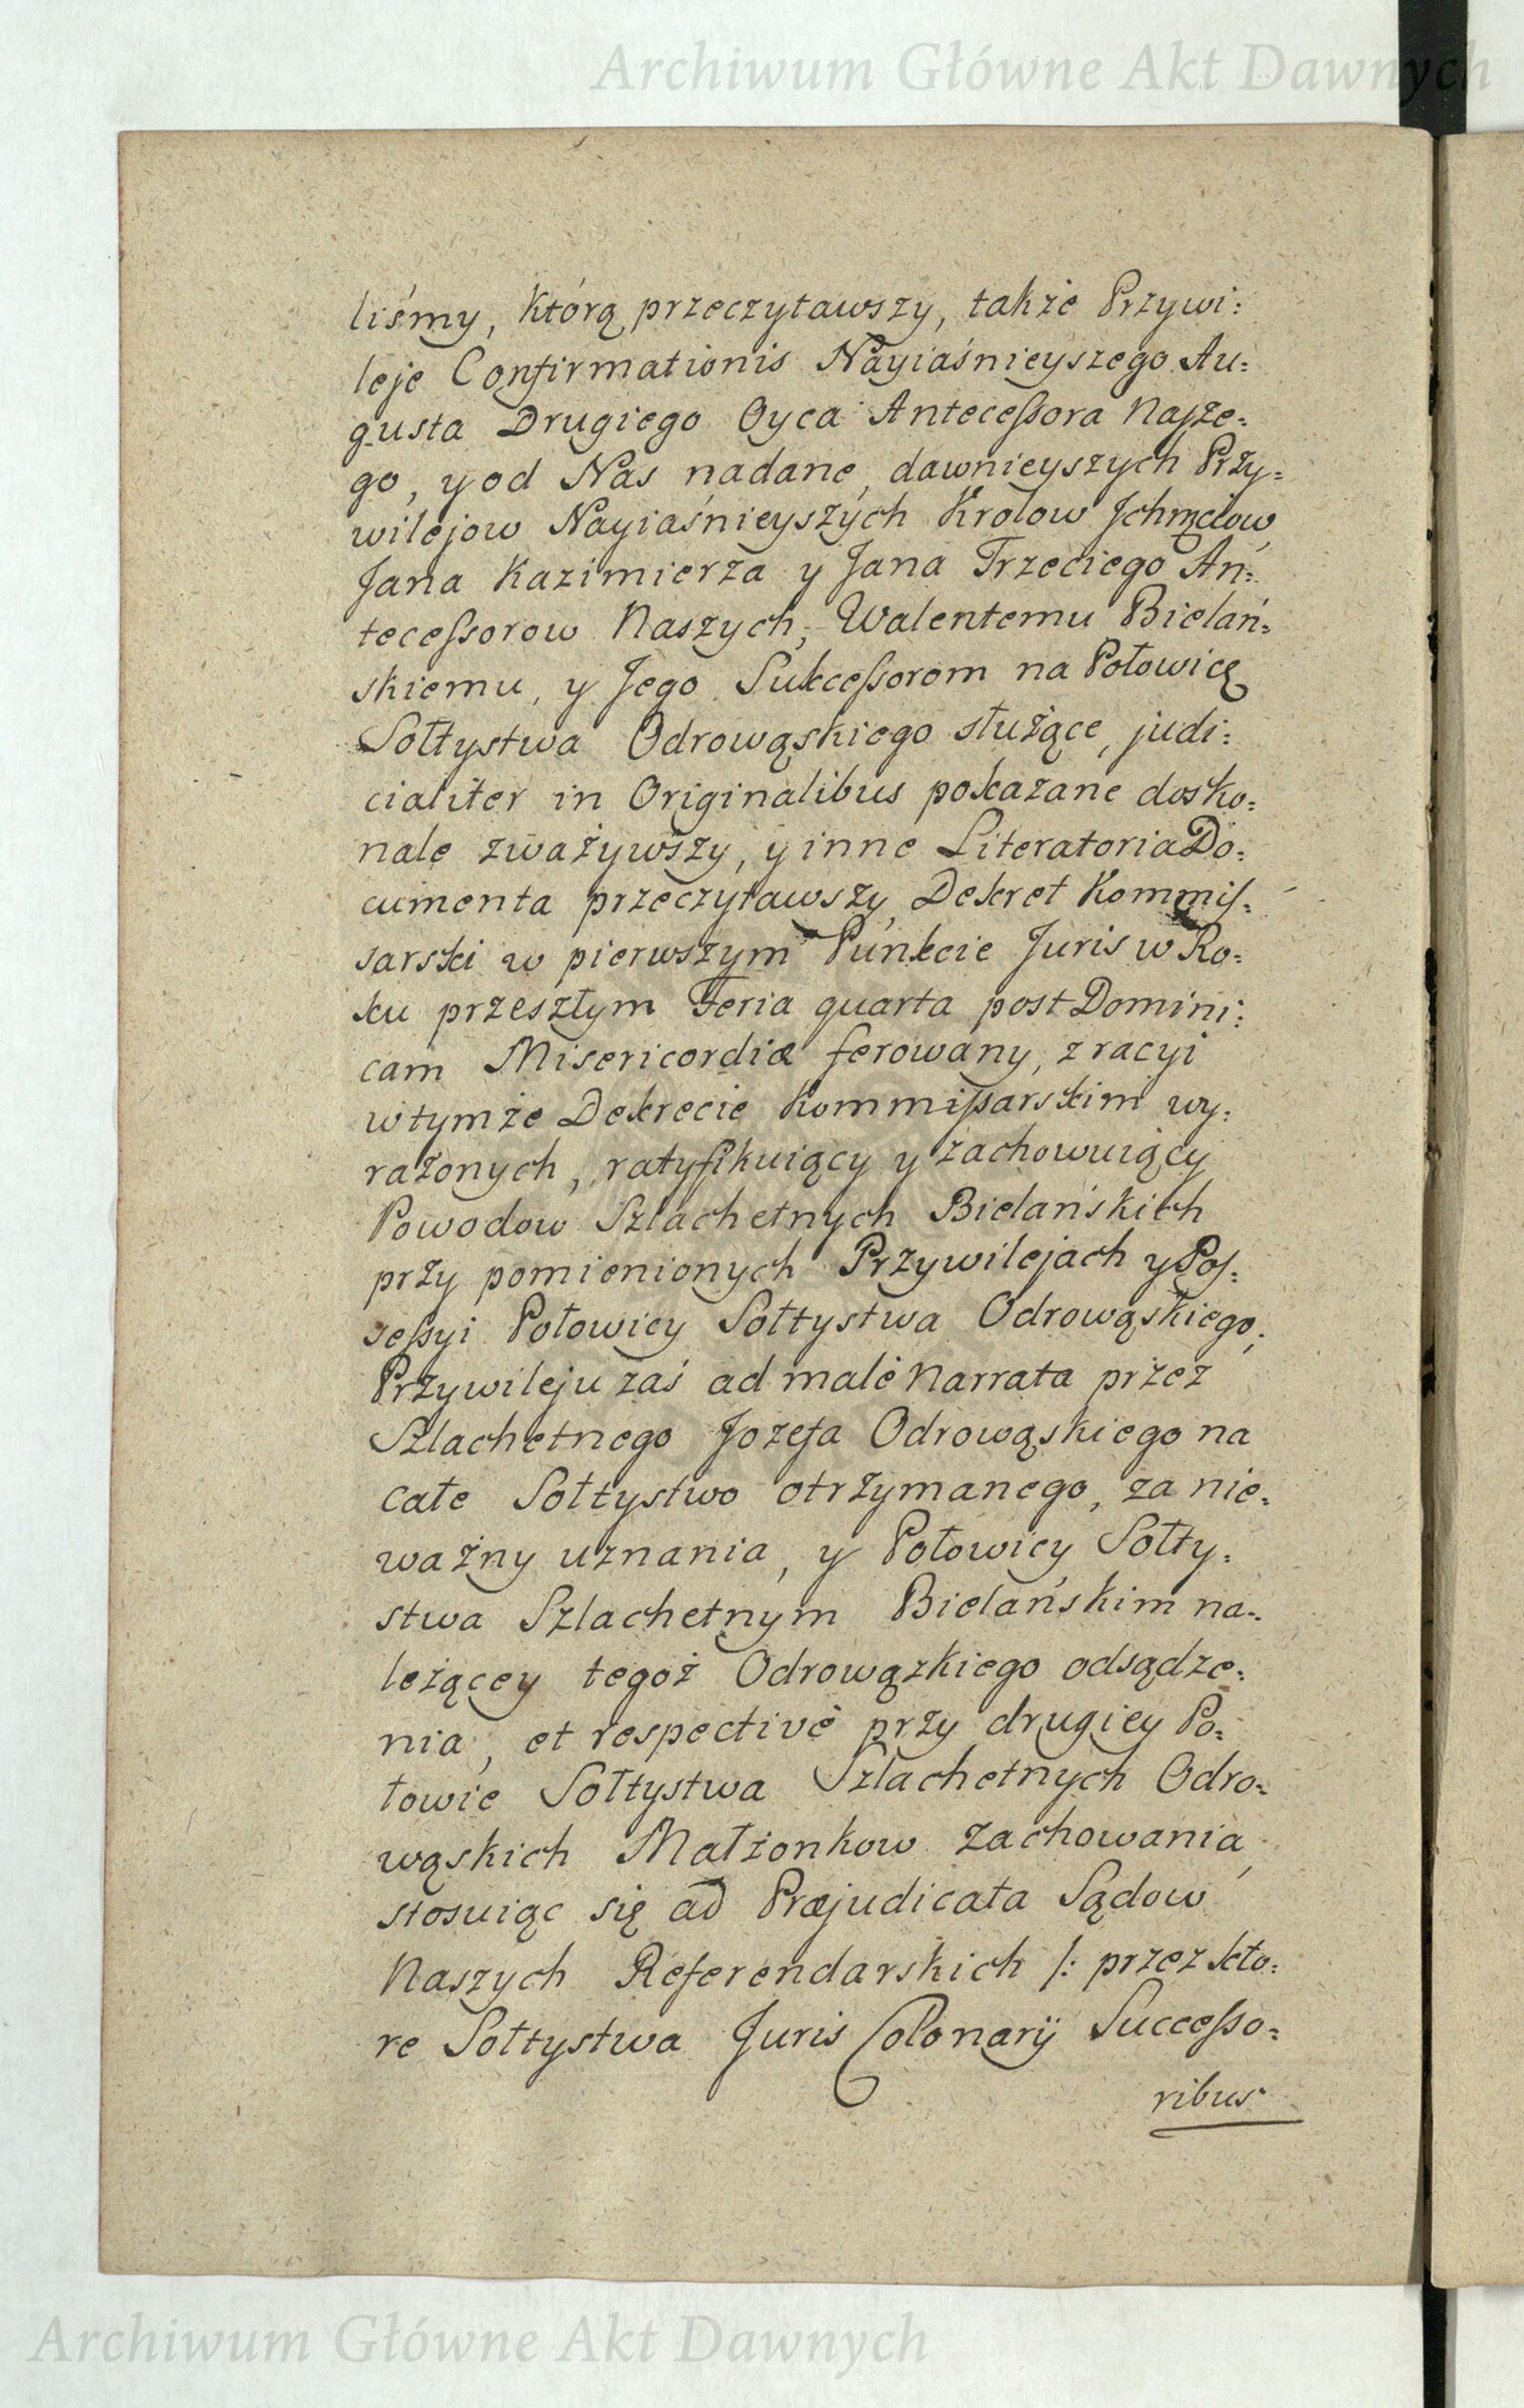 Archiwum Główne Akt Dawnych
liśmy, którą przeczytawszy, także Przywi:
leje Confirmationis Nayiaśnieyszego Au:
gusta Drugiego Oyca Antecessora Nasze:
go, y od Nas nadane, dawnieyszych Przy:
wilejow Nayiaśnieyszych Krolow Jchmciow
Jana Kazimierza y Jana Trzeciego An:
tecessorow Naszych, Walentemu Bielań:
skiemu, y Jego Sukcessorom na Połowicę
Sołtystwa Odrowąskiego służące, judi:
cialiter in Originalibus pokazane dosko:
nale zważywszy, y inne Literatoria Do:
cumenta przeczytawszy, Dekret Kommis:
sarski w pierwszym Punkcie Juris w Ro:
ku przeszłym Feria quarta post Domini:
cam Misericordiæ ferowany, z racyi
w tymże Dekrecie Kommissarskim wy:
rażonych, ratyfikuiący y zachowuiący
Powodow Szlachetnych Bielańskich
przy pomienionych Przywilejach y Pos:
sessyi Połowicy Sołtystwa Odrowąskiego,
Przywileju zaś ad malè narrata przez
Szlachetnego Jozefa Odrowąskiego na
całe Sołtystwo otrzymanego, za nie:
ważny uznania, y Połowicy Sołty:
stwa Szlachetnym Bielańskim na:
leżącey tegoż Odrowązkiego odsądze:
nia, et respectivè przy drugiey Po:
łowie Sołtystwa Szlachetnych Odro:
wąskich Małżonkow zachowania,
stosuiąc się ad Præjudicata Sądow
Naszych Referendarskich /: przez kto:
re Sołtystwa Juris Colonarij Successo:
ribus
Archiwum Główne Akt Dawnych